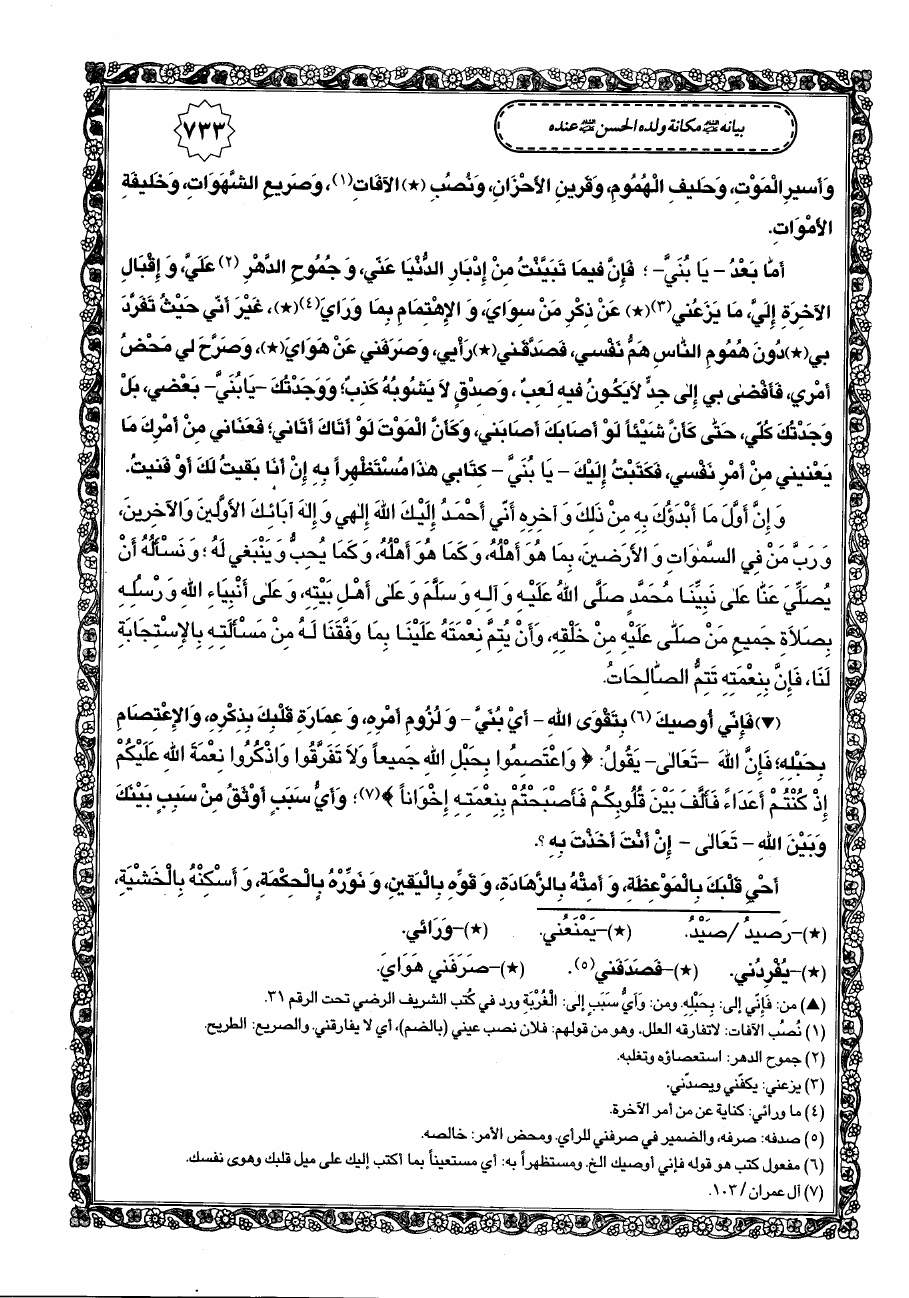 بيانه عليه السلام مكانة ولده الحسن عليه السلام عنده
٧٣٣
وَ أَسيرِ الْمَوْتِ، وَ حَليفِ الْهُمُومِ، وَ قَرينِ الأَحْزَانِ، وَ نُصُبِ (★) الآفَاتِ(١)، وَ صَريعِ الشَّهَوَاتِ، وَ خَليفَةِ
الأَمْوَاتِ.
أَمَّا بَعْدُ – يَا بُنَيَّ– ؛ فَإِنَّ فيمَا تَبَيَّنْتُ مِنْ إِدْبَارِ الدُّنْيَا عَنّي، وَ جُمُوحِ الدَّهْرِ (٢) عَلَيَّ، وَ إِقْبَالِ
الآخِرَةِ إِلَيَّ، مَا يَزَعُني(٣)(★) عَنْ ذِكْرِ مَنْ سِوَايَ، وَ الإِهْتِمَامِ بِمَا وَرَايَ(٤)(★)، غَيْرَ أَنّي حَيْثُ تَفَرَّدَ
بي(★)دُونَ هُمُومِ النَّاسِ هَمُّ نَفْسي، فَصَدَّقَني(★)رَأْيي، وَ صَرَفَني عَنْ هَوَايَ(★)، وَ صَرَّحَ لي مَحْضُ
أَمْري، فَأَفْضىٰ بي إِلىٰ جِدٍّ لاَيَكُونُ فيهِ لَعِبٌ، وَ صِدْقٍ لاَ يَشُوبُهُ كَذِبٌ؛ وَ وَجَدْتُكَ –يَا بُنَيَّ– بَعْضي، بَلْ
وَجَدْتُكَ كُلّي، حَتّٰى كَأَنَّ شَيْئاً لَوْ أَصَابَكَ أَصَابَني، وَ كَأَنَّ الْمَوْتَ لَوْ أَتَاكَ أَتَاني؛ فَعَنَاني مِنْ أَمْرِكَ مَا
يَعْنيني مِنْ أَمْرِ نَفْسي، فَكَتَبْتُ إِلَيْكَ – يَا بُنَيَّ – كِتَابي هٰذَا مُسْتَظْهِراً بِهِ إِنْ أَنَا بَقيتُ لَكَ أَوْ فَنيتُ.
وَ إِنَّ أَوَّلَ مَا أَبْدَؤُكَ بِهِ مِنْ ذَلِكَ وَ آخِرِهِ أَنّي أَحْمَدُ إِلَيْكَ اللهَ إِلٰهي وَ إِلٰهَ آبَائِكَ الأَوَّلينَ وَ الآخِرينَ،
وَ رَبَّ مَنْ فِي السَّمٰوَاتِ وَ الأَرَضينَ، بِمَا هُوَ أَهْلُهُ، وَ كَمَا هُوَ أَهْلُهُ، وَ كَمَا يُحِبُّ وَ يَنْبَغي لَهُ ؛ وَ نَسْأَلُهُ أَنْ
يُصَلِّيَ عَنَّا عَلىٰ نَبِيِّنَا مُحَمَّدٍ صَلَّى اللهُ عَلَيْهِ وَ آلِهِ وَ سَلَّمَ وَ عَلىٰ أَهْلِ بَيْتِهِ، وَ عَلىٰ أَنْبِيَاءِ اللهِ وَ رُسُلِهِ
بِصَلاَةِ جَميعِ مَنْ صَلّىٰ عَلَيْهِ مِنْ خَلْقِهِ، وَ أَنْ يُتِمَّ نِعْمَتَهُ عَلَيْنَا بِمَا وَفَّقَنَا لَهُ مِنْ مَسْأَلَتِهِ بِالإِسْتِجَابَةِ
لَنَا، فَإِنَّ بِنِعْمَتِهِ تَتِمُّ الصَّالِحَاتُ.
(▼) فَإِنّي أُوصيكَ (٦) بِتَقْوَى اللهِ – أَيْ بُنَيَّ – وَ لُزُومِ أَمْرِهِ، وَ عِمَارَةِ قَلْبِكَ بِذِكْرِهِ، وَ الإِعْتِصَامِ
بِحَبْلِهِ؛ فَإِنَّ اللهَ –تَعَالىٰ– يَقُولُ: ﴿ وَ اعْتَصِمُوا بِحَبْلِ اللهِ جَميعاً وَ لاَ تَفَرَّقُوا وَ اذْكُرُوا نِعْمَةَ اللهِ عَلَيْكُمْ
إِذْ كُنْتُمْ أَعْدَاءً فَأَلَّفَ بَيْنَ قُلُوبِكُمْ فَأَصْبَحْتُمْ بِنِعْمَتِهِ إِخْوَاناً ﴾(٧)؛ وَ أَيُّ سَبَبٍ أَوْثَقُ مِنْ سَبَبٍ بَيْنَكَ
وَ بَيْنَ اللهِ – تَعَالىٰ – إِنْ أَنْتَ أَخَذْتَ بِهِ ؟.
أَحْيِ قَلْبَكَ بِالْمَوْعِظَةِ، وَ أَمِتْهُ بِالزَّهَادَةِ، وَ قَوِّهِ بِالْيَقينِ، وَ نَوِّرْهُ بِالْحِكْمَةِ، وَ أَسْكِنْهُ بِالْخَشْيَةِ،
(★)–رَصيدُ / صَيْدُ. (★)–يَمْنَعُني. (★)–وَرَائي.
(★)–يُفْرِدُني. (★)–فَصَدَفَني(٥). (★)–صَرَفَني هَوَايَ.
(▲) من: فَإِنّي إلى: بِحَبْلِهِ. ومن: وَأَيُّ سَبَبٍ إلى: الْغُرْبَةِ ورد في كُتب الشريف الرضي تحت الرقم ٣١.
(١) نُصُب الآفات: لاتفارقه العلل. وهو من قولهم: فلان نصب عيني (بالضم)، أي لا يفارقني. والصريع: الطريح.
(٢) جموح الدهر: استعصاؤه وتغلبه.
(٣) يزعني: يكفّني ويصدّني.
(٤) ما ورائي: كناية عن من أمر الآخرة.
(٥) صدفه: صرفه، والضمير في صرفني للرأي. ومحض الأمر: خالصه.
(٦) مفعول كتب هو قوله فإني أوصيك الخ. ومستظهراً به: أي مستعيناً بما أكتب إليك على ميل قلبك وهوى نفسك.
(٧) آل عمران / ١٠٣.